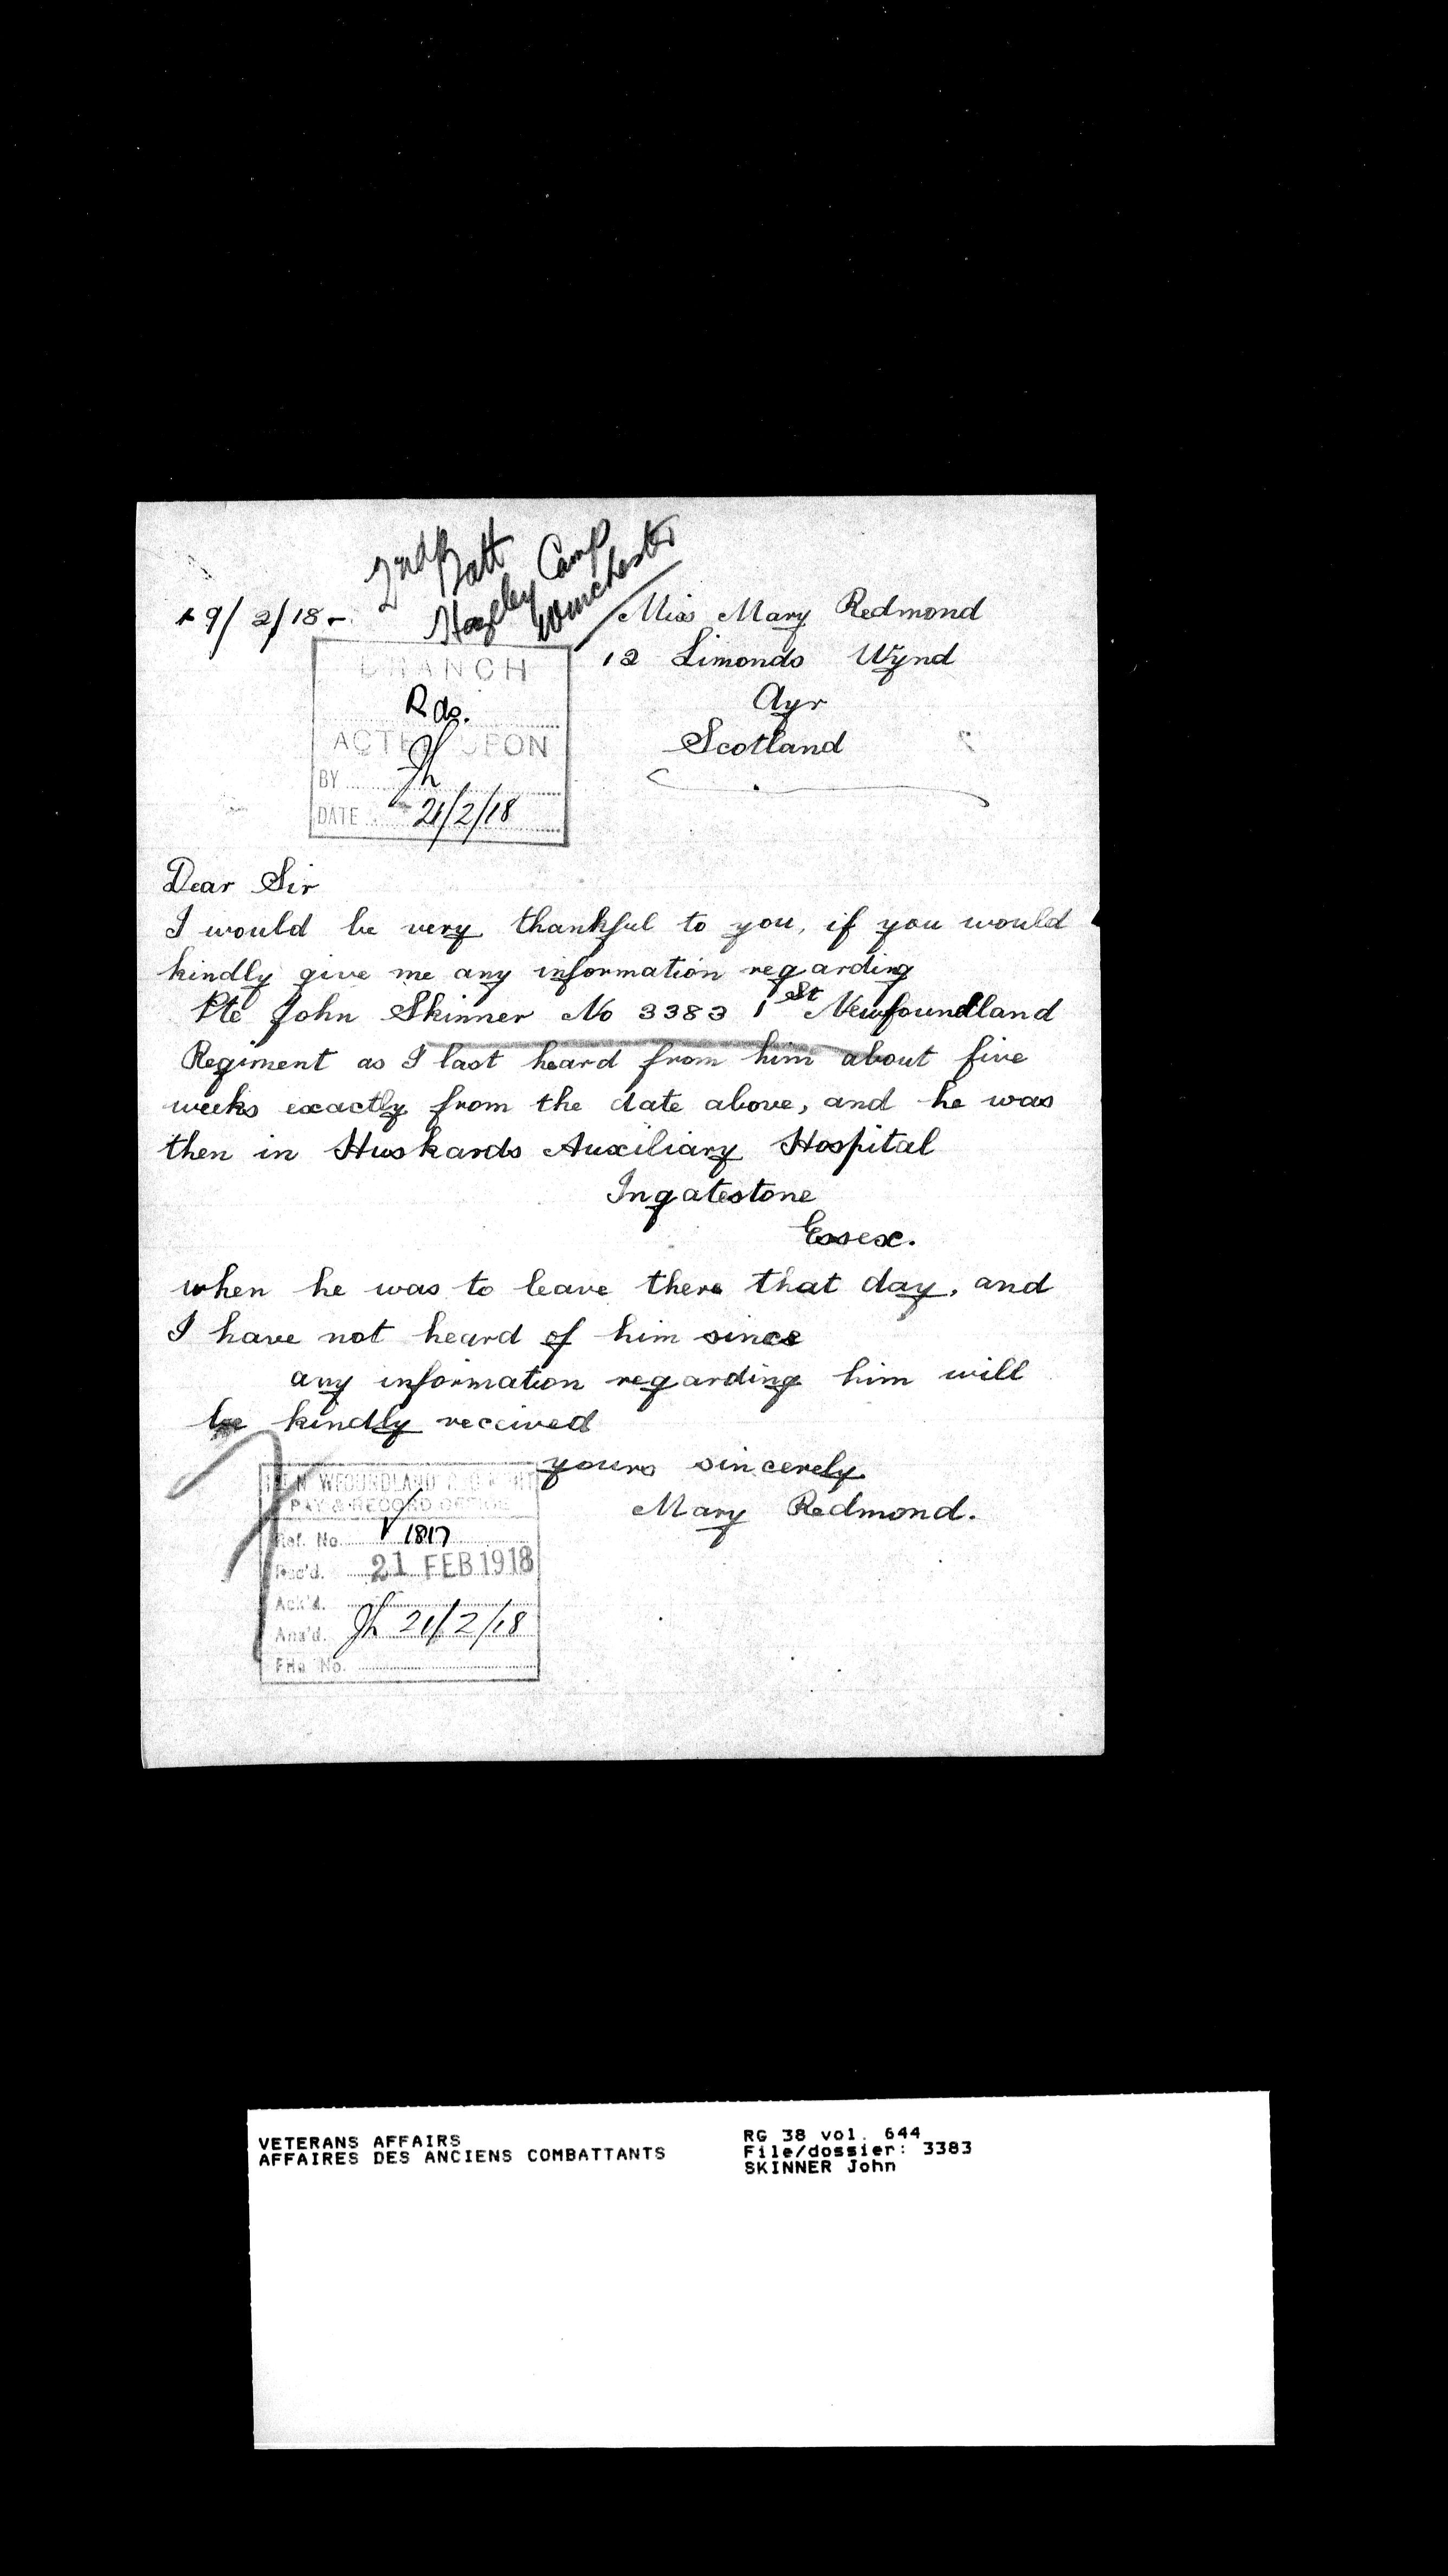 2nd Batt
Hazeley Camp
Winchester
19/2/18-
Miss Mary Redmond
12 Limonds Wynd
Ayr
Scotland
BRANCH
Rds.
ACTED UPON
BY Jh
DATE 21/2/18
Dear Sir
I would be very thankful to you, if you would
kindly give me any information regarding
Pte John Skinner No 3383 1st Newfoundland
Regiment as I last heard from him about five
weeks exactly from the date above, and he was
then in Huskards Auxiliary Hospital
Ingatestone
Essex.
when he was to leave there that day, and
I have not heard of him since
any information regarding him will
be kindly received
yours sincerely
Mary Redmond.
NEWFOUNDLAND
PAY & RECORD OFFICE
Ref. No. 1817
Rec'd. 21 FEB 1918
Ack'd.
Ans'd. Jh 21/2/18
File No.
VETERANS AFFAIRS
AFFAIRES DES ANCIENS COMBATTANTS
RG 38 vol. 644
File/dossier: 3383
SKINNER John